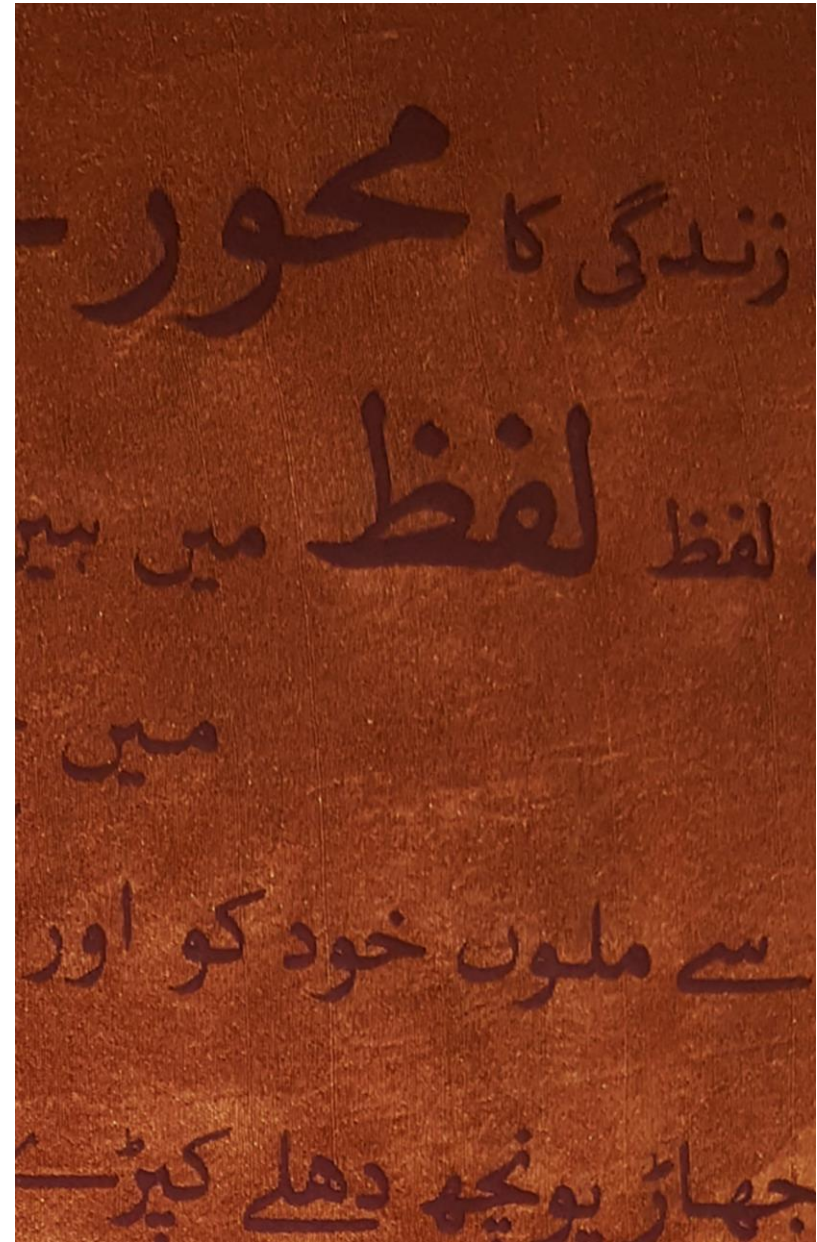 زندگی کا محور
لفظ لفظ میں ہیں
میں
سے ملوں خود کو اور
جھاڑ پونچھ دھلے کپڑے